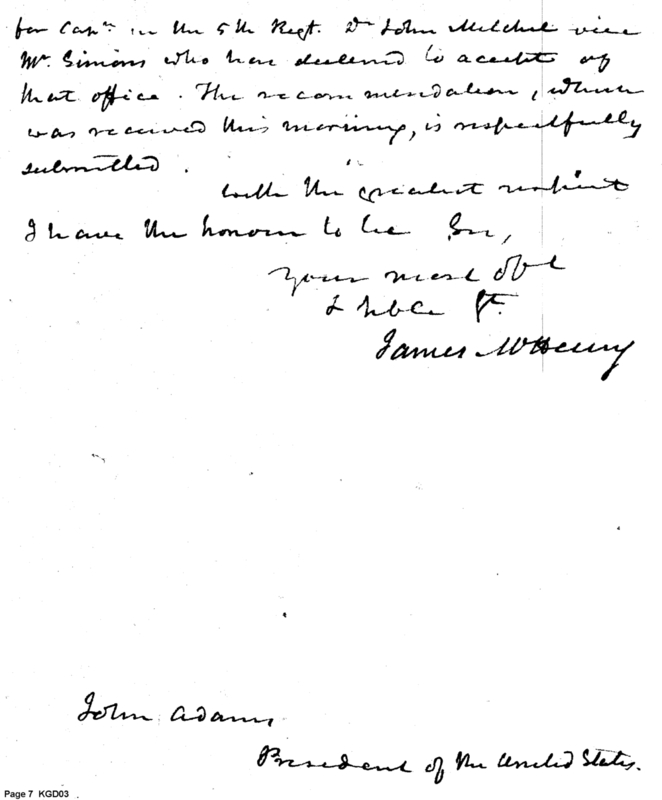 for Capn. in the 5th Regt. Dr John Mitchel vice
Mr. Simons who has declined to accept of
that office. The recommendation, which
was received this morning, is respectfully
submitted.
with the greatest respect
I have the honour to be Sir,
Your most obt
& hble St.
James McHenry
John Adams
President of the United States.
Page 7 KGD03